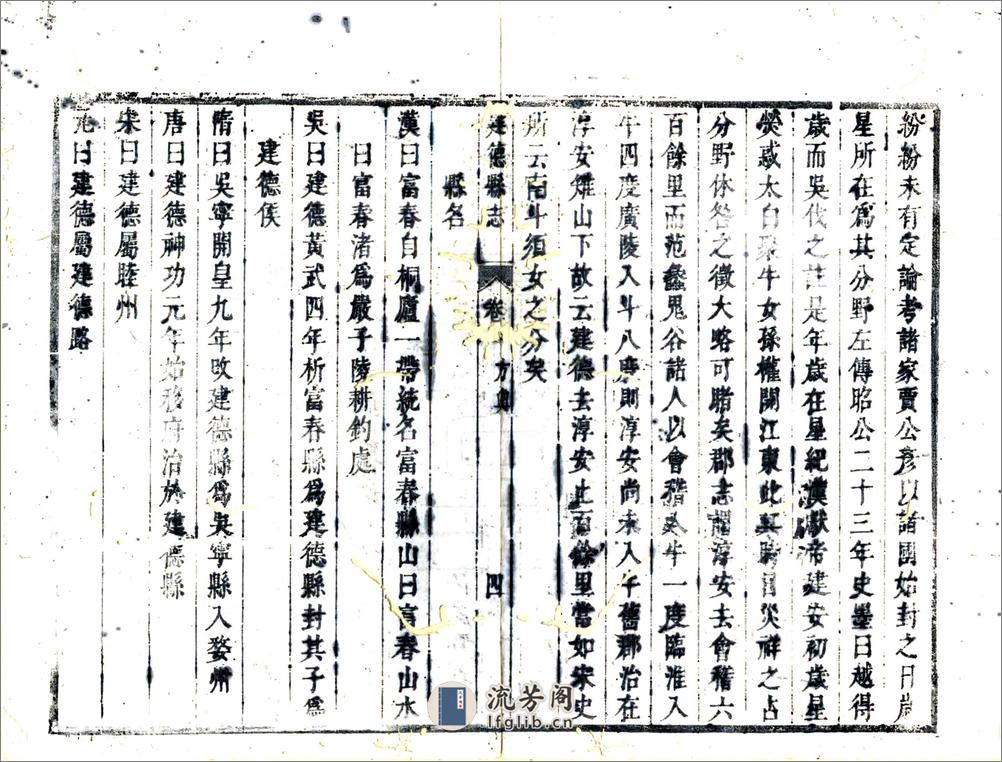 紛紛未有定論考諸家賈公彥以諸國始封之日歲
星所在爲其分野左傳昭公二十三年史墨曰越得
歲而吳伐之註是年歲在星紀漢獻帝建安初歲星
熒惑太白聚牛女孫權開江東此其時日災祥之占
分野休咎之徵大略可睹矣郡志謂淳安去會稽六
百餘里而范蠡鬼谷諸人以會稽入牛一度臨淮入
牛四度廣陵入斗八度則淳安尚未入午舊郡治在
淳安雉山下故云建德去淳安止百餘里當如宋史
所云南斗須女之分矣
建德縣志 卷 方輿 四
縣名
漢曰富春自桐廬一帶統名富春縣山曰富春山水
曰富春渚爲嚴子陵耕釣處
吳曰建德黃武四年析富春縣爲建德縣封其子爲
建德侯
隋曰吳寧開皇九年改建德縣爲吳寧縣入婺州
唐曰建德神功元年始移府治於建德縣
宋曰建德屬睦州
元曰建德屬建德路
流芳阁
lfglib.cn